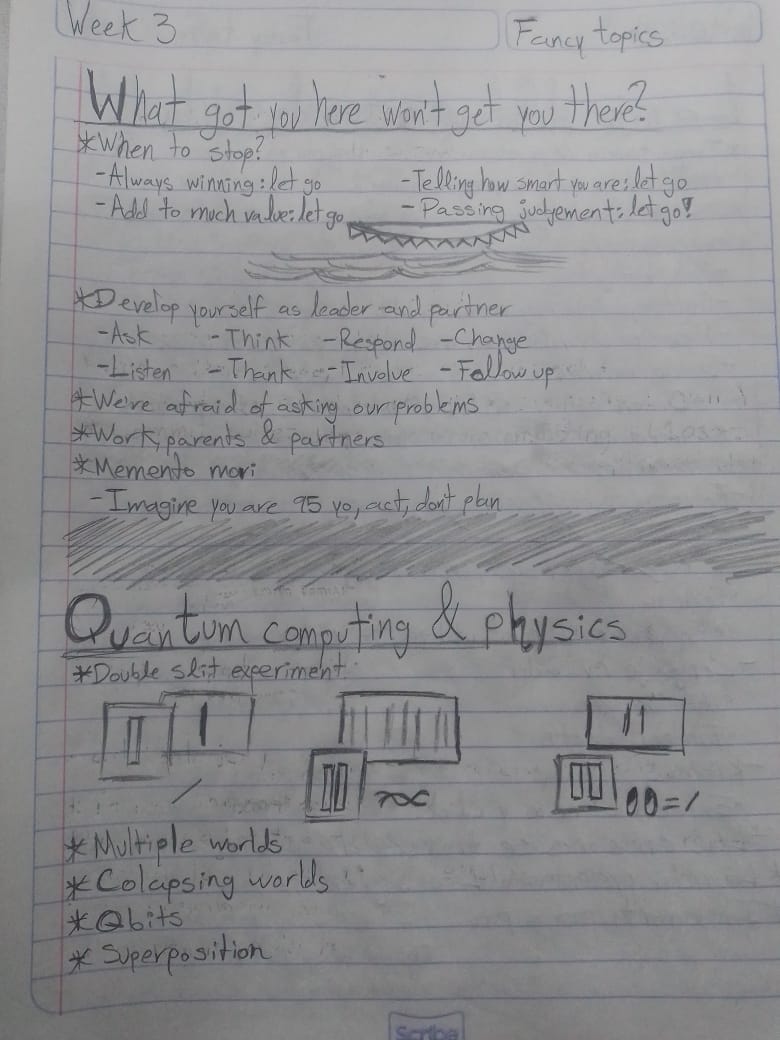 Week 3
Fancy topics
What got you here won't get you there?
*When to stop?
-Always winning: let go
-Telling how smart you are: let go
-Add to much value: let go
-Passing judgement: let go!
*Develop yourself as leader and partner
-Ask -Think -Respond -Change
-Listen -Thank -Involve -Follow up
*We're afraid of asking our problems
*Work, parents & partners
*Memento mori
-Imagine you are 95 yo, act, don't plan
Quantum computing & physics
*Double slit experiment
00=/
*Multiple worlds
*Colapsing worlds
*Qbits
*Superposition
Scribe